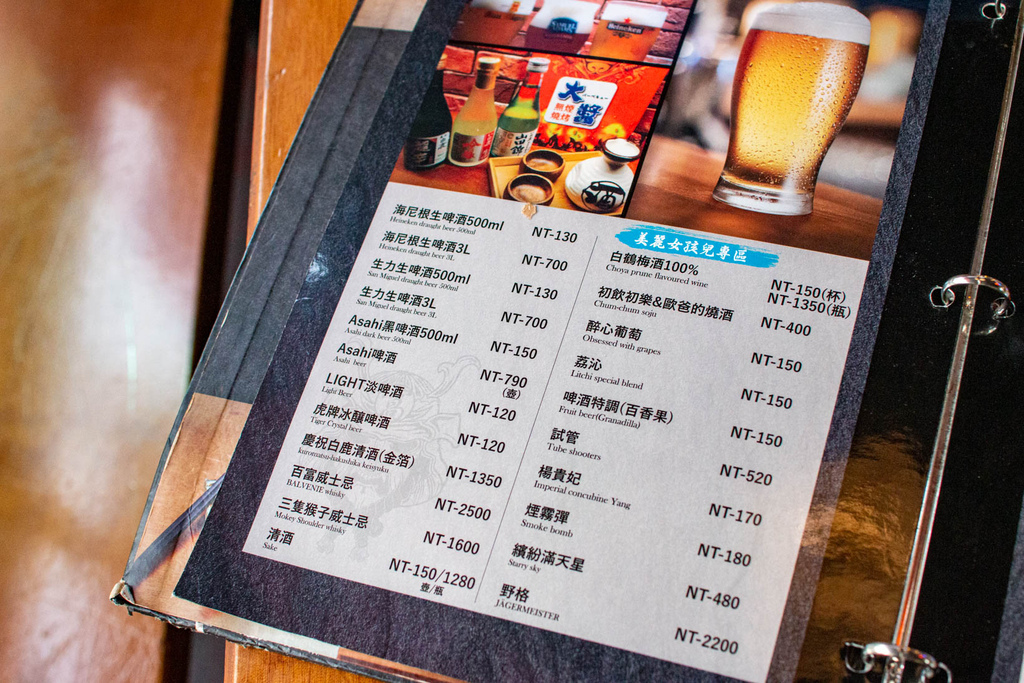 Heineken
大醬
無煙
燒烤
酒
海尼根生啤酒500ml NT-130
Heineken draught beer 500ml
海尼根生啤酒3L NT-700
Heineken draught beer 3L
生力生啤酒500ml NT-130
San Miguel draught beer 500ml
生力生啤酒3L NT-700
San Miguel draught beer 3L
Asahi黑啤酒500ml NT-150
Asahi dark beer 500ml
Asahi啤酒 NT-790
Asahi beer (壺)
LIGHT淡啤酒 NT-120
Light Beer
虎牌冰釀啤酒 NT-120
Tiger Crystal beer
慶祝白鹿清酒(金箔) NT-1350
kuromatsu-hakushika keisyuku
百富威士忌 NT-2500
BALVENIE whisky
三隻猴子威士忌 NT-1600
Mokey Shoulder whisky
清酒 NT-150/1280
Sake 壺/瓶
美麗女孩兒專區
白鶴梅酒100% NT-150(杯)
Choya prune flavoured wine NT-1350(瓶)
初飲初樂&歐爸的燒酒 NT-400
Chum-churn soju
醉心葡萄 NT-150
Obsessed with grapes
荔沁 NT-150
Litchi special blend
啤酒特調(百香果) NT-150
Fruit beer(Granadilla)
試管 NT-520
Tube shooters
楊貴妃 NT-170
Imperial concubine Yang
煙霧彈 NT-180
Smoke bomb
繽紛滿天星 NT-480
Starry sky
野格 NT-2200
JÄGERMEISTER